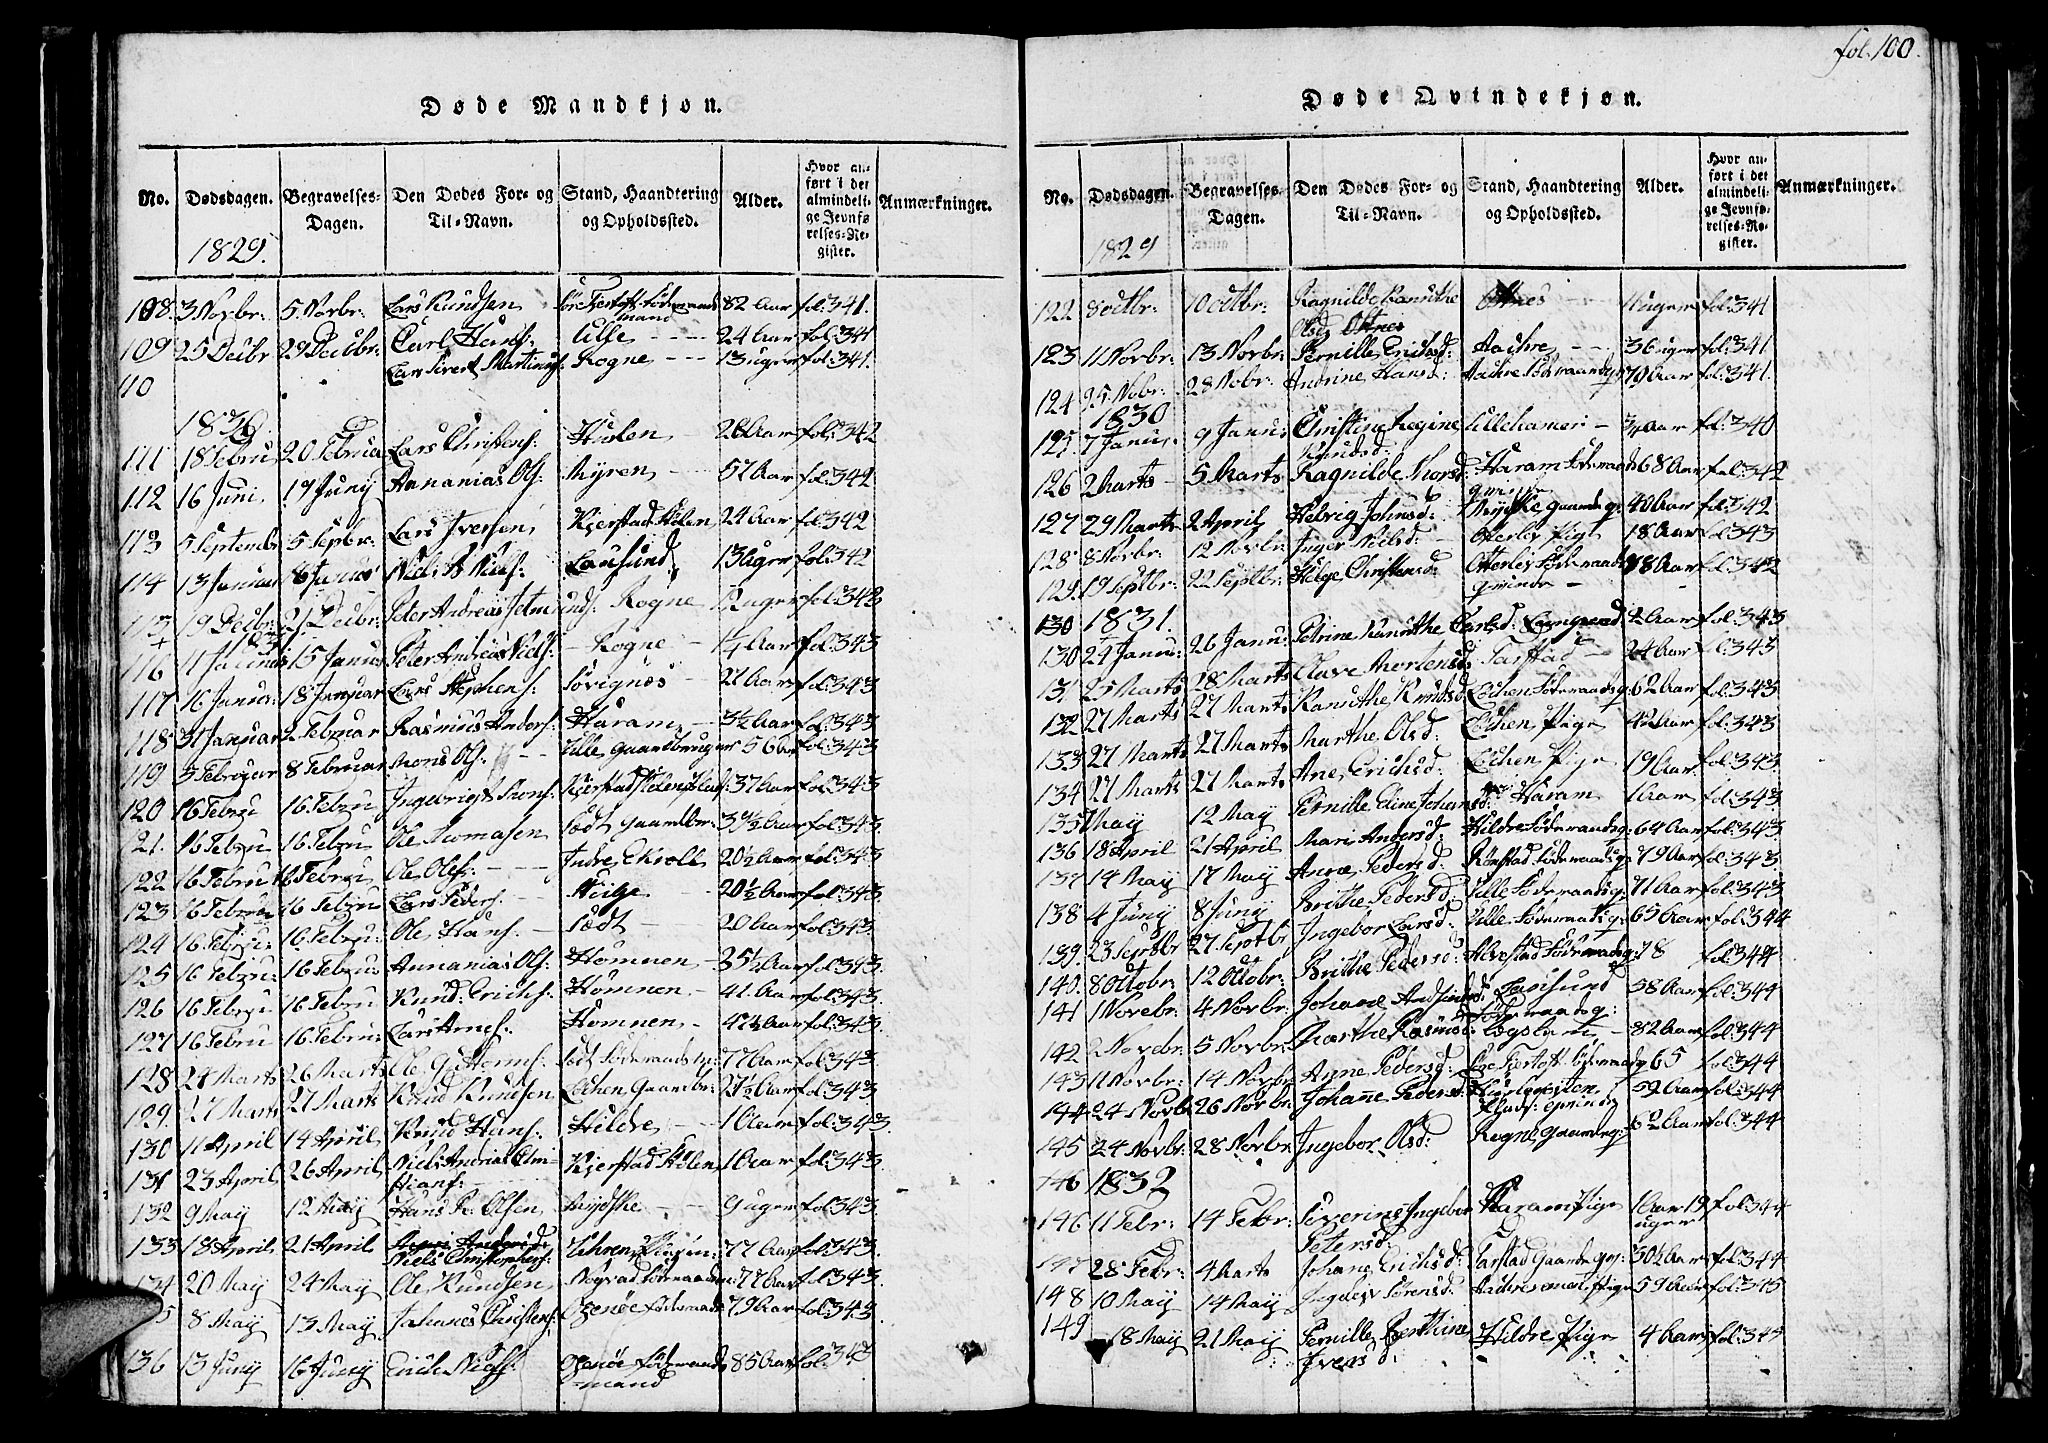 fol. 100.
Døde Mandkjøn.
No. Dødsdagen. Begravelses-Dagen. Den Dødes For- og Til-Navn. Stand, Haandtering og Opholdssted. Alder. Hvor anført i det almindelige Jevnførelses-Register. Anmærkninger.
1829.
108. 3 Novbr: 5. Novbr: Lars Knudsen 82 Aar fol: 341.
109 25 Decbr 29 Decbr: Carl Hans: Ulle 24 Aar fol: 341
110 Lars Sivert Martinus: Rogne 13 uger fol: 341.
1830.
111 18 Febru 20 Februa Lars Christens: Hurlen Aar fol: 342
112 16 Juni 19 Juny Annanias Ols: Myren 57 Aar fol: 342
113 5 Septembr 5 Sepbr: Lars Iversen Kjerstad Holen 24 Aar fol: 342
114 13 Januar 18 Januar Niels Niels: Lausund 13 Uger fol: 342
115 19 Decbr: 21 Decbr: Peter Andreas Rogne 12 uger fol: 343
116 11 Januar 15 Januar Peter Andreas Niels: Rogne 1 1/4 Aar fol: 343
117 16 Januar: 18 Januar Lars Stephens: Søvignæs 21 Aar fol: 343
118 31 Januar 2 Februar Rasmus Anders: Haram 3 1/2 Aar fol: 343
119 3 Februar 8 Februar Mons Ols: Ulle Gaardbruger 56 Aar fol: 343
120 16 Febru 16. Febru Ingebrigt Kjerstad Holens 37 Aar fol: 343
21. 16 Febru 16. Febru Ole Thomasen Sødt Gaardbr: Aar fol: 343
122 16 Febru 16 Febru Ole Ols: Indre Ekroll 20 1/2 Aar fol: 343
123 16 Febru 16 Febru Lars Peders: 20 1/2 Aar fol: 343
124 16. Febru: 16. Febru: Ole Hans: Sødt 20 Aar fol: 343.
125 16 Febru: 16 Febru: Annanias Ols: Hømnen 35 1/2 Aar fol: 343.
126 16 Febru 16 Febru Knud Erichs: Hømnen 41. Aar fol: 343.
127 16 Febru 16 Febru: Lars Arnes: Hømnen 47 1/2 Aar fol: 343
128 24 Marts 26 Marts Ole Guttorms: 77 Aar fol: 343
129 27 Marts 27 Marts Knud Knudsen Eichen Gaardbr: 27 1/2 Aar fol: 343
130 11 April 14 April Knud Hans: Hildre 1 Aar fol: 343.
131 23 April 26 April Niels Andrias Kjerstad Holen 1 Aar fol: 343.
132 9 May 12 May Hans R. Olsen Mydske 9 uger fol: 343.
133 18 April 21 April Niels Christophers: 77 Aar fol: 343.
134 20 May 24 May Ole Knudsen 77 Aar fol: 343.
8 May 13 May Johanes Christens: 79 Aar fol: 343
136 13 Juny 16 Juny Erich Niels: mand 85 Aar fol: 343
Døde Qvindekjøn.
No. Dødsdagen. Begravelses-Dagen. Den Dødes For- og Til-Navn. Stand, Haandtering og Opholdssted. Alder. Hvor anført i det almindelige Jevnførelses-Register. Anmærkninger.
1829
122 8 Octbr: 10 Octbr: Ragnilde Kanuthe Olsd Otnes uger fol: 341
123 11 Novbr: 13 Novbr: Pernille Erichsd: Aachre 36 uger fol: 341
124 25 Nobr: 28 Nobr: Andrine Hansd: Aachre 70 Aar fol: 341.
1830
125 7 Janu: 9 Janu: Christine Regine Knudsd: Lillehamer Aar fol: 340
126 2 Marts 5 Marts Ragnilde Haram 68 Aar fol: 342
127 29 Marts 2 April Helvig Johnsd: Mydske Gaardq: 40 Aar fol: 342
128 8 Novbr: 12 Novbr: Inger Nielsd: Otterlev Pige 18 Aar fol: 343
129. 19 Septbr: 22 Septbr: Helge Christensd: Otterlev qvinde 78 Aar fol: 342
130 1831.
130 24 Janu: 26 Janu: Petrine Kanuthe Carlsd: 2 Aar fol: 343
131 25 Marts 28 Marts Olave Mortensd: Tarstad 24 Aar fol: 343
132 27 Marts 27 Marts Kanuthe Knudsd: Eichen 62 Aar fol: 343
133 27 Marts 27 Marts Marthe Olsd: Eichen Pige 42 Aar fol: 343
134 27 Marts 27 Marts Ane Erichsd: Eichen Pige 19 Aar fol: 343.
135 May 12 May Pernille Eline Johansd: Haram 1 Aar fol: 343
136 18 April 21 April Mari Andersd: Hildre 64 Aar fol: 343
137 14 May 17 May Anne Pedersd: Rønstad 79 Aar fol: 343
138 4 Juny 8 Juny Brithe Pedersd: Ulle 71 Aar fol: 343
139 23 Septbr 27 Septbr Ingebor Larsd: Ulle 65 Aar fol: 344
140. 8 Octobr: 12 Octobr: Brithe Pedersd: 78 fol: 344
141 1 Novebr: 4 Novbr: Johane Lausund 58 Aar fol: 344
142 2 Novebr: 5 Novbr: Marthe Rasmusd: Løgslam 82 Aar fol: 344
143 11 Novbr: 14 Novbr: Anne Pedersd: 65 fol: 344
144 24 Novbr: 26 Novbr: Johane Pedersd: 59 Aar fol: 344
145 24 Novbr: 28 Novbr: Ingebor Olsd: Rogne 62 Aar fol: 344
146 1832
146 11 Febr: 14 Febr: Severine Ingebor Petersd: Haram Pige 1 Aar 19 uger fol: 344
147 28 Febr: 4 Marts Johane Erichsd: Tarstad 30 1/2 Aar fol: 344
148 10 May 14 May Sørensd: Aachre Pige 59 Aar fol: 345
149 18 May 21 May Pernille Berthine Iversd: Hildre Pige 4 Aar fol: 345